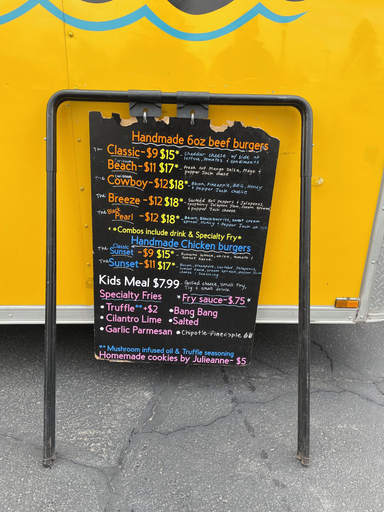 Handmade 6oz beef burgers
The Classic-$9 $15* - Cheddar cheese w/ side of
lettuce, tomatoes & condiments
Beach-$11 $17* - Fresh cut Mango Salsa, Mayo &
Pepper Jack cheese
The Caribbean
Cowboy-$12 $18* - Bacon, Pineapple, BBQ, Honey
& Pepper Jack cheese
The Breeze-$12 $18* - Sauteed Bell peppers & Jalapenos,
raspberry Jalapeno Jam, cream spread,
& pepper Jack cheese
The Black
Pearl -$12 $18* - Bacon, Blackberries, sweet cream
spread, Honey & Pepper Jack
*Combos include drink & Specialty Fry*
Handmade Chicken burgers
The Classic
Sunset -$9 $15* - Romaine lettuce, onion, tomato &
The Sunset-$11 $17*
Kids Meal $7.99 - Grilled cheese, Small Fry,
Toy & small drink
Specialty Fries *Fry sauce-$.75*
•Truffle**+$2 •Bang Bang
•Cilantro Lime •Salted
•Garlic Parmesan •Chipotle-Pineapple BBQ
**Mushroom infused oil & Truffle seasoning
Homemade cookies by Julieanne- $5